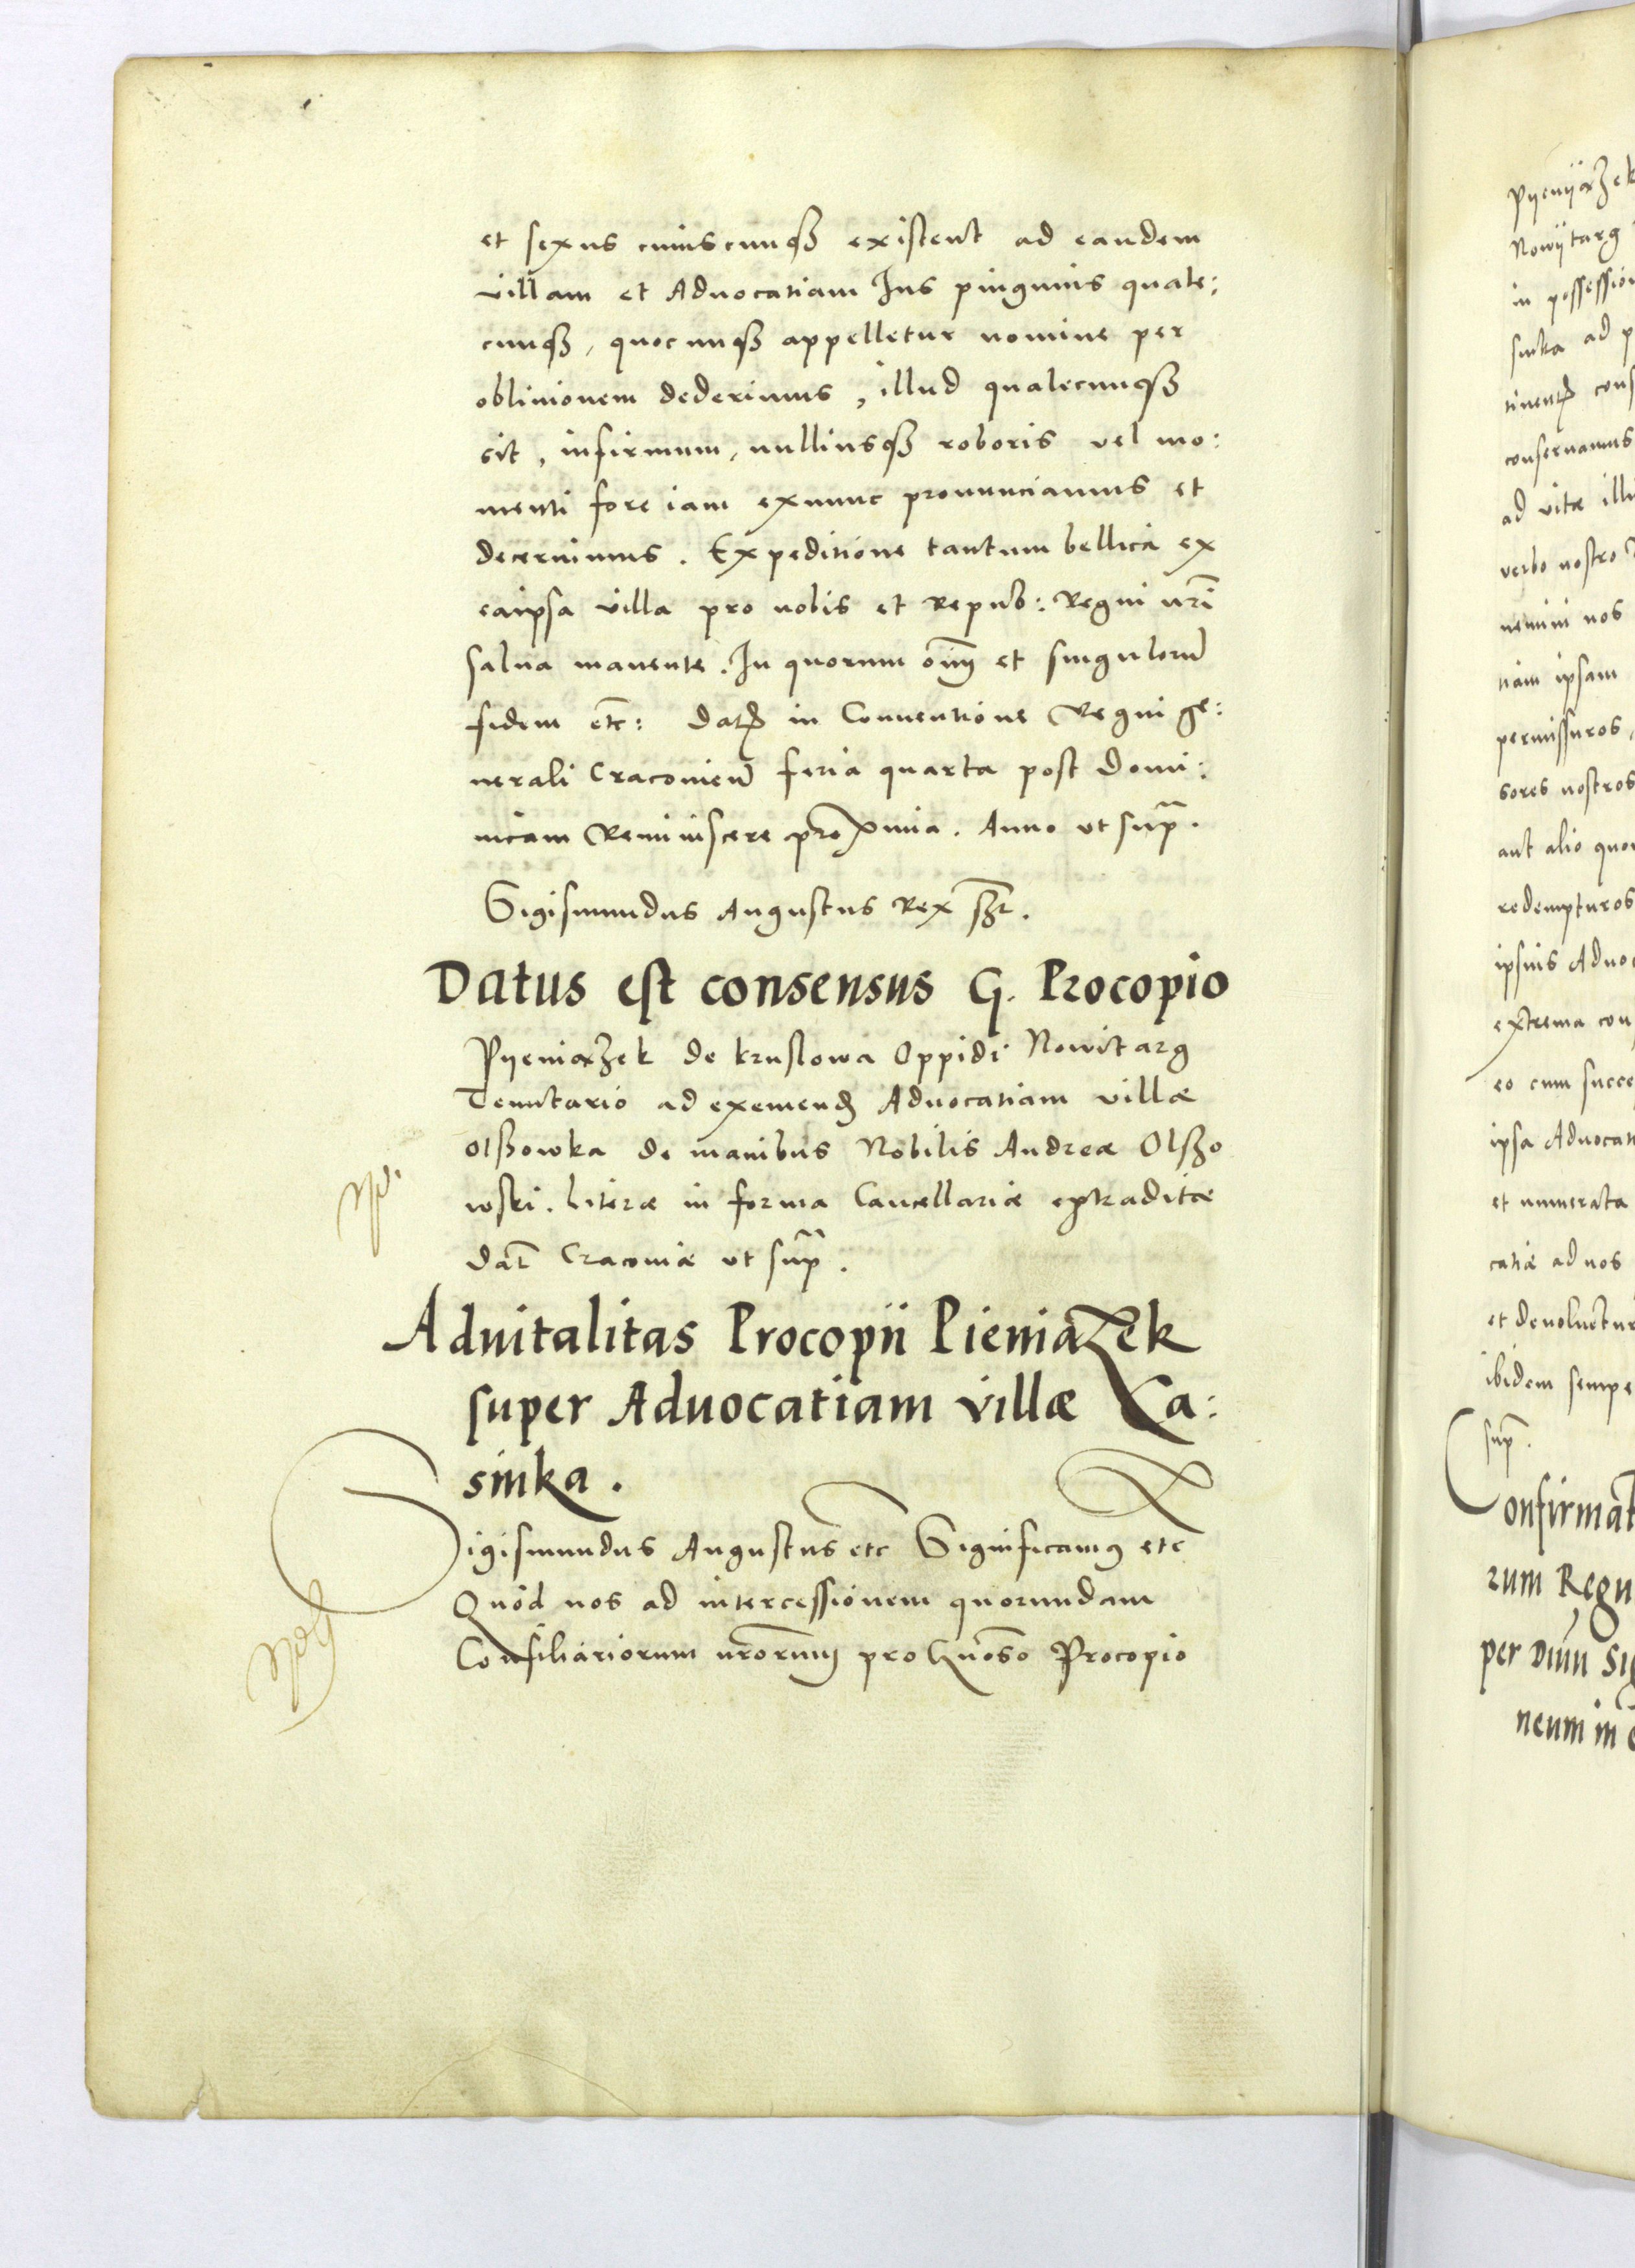 et sexus cuiuscunqꝫ existent ad eandem
villam et Aduocatiam Ius pinguius quale:
cunqꝫ, quocunqꝫ appelletur nomine per
obliuionem dederimus, illud qualecunqꝫ
sit, infirmum, nulliusqꝫ roboris vel mo:
menti fore iam exnunc pronunciamus et
decernimus. Expeditione tantum bellica ex
eaipsa villa pro nobis et Repub: Regni nrĩ
salua manente. In quorum oĩm et singulorũ
fidem etc: Datꝭ in Conuentione Regni ge:
nerali Cracouieñ feria quarta post Domi:
nicam Reminiscere proxima. Anno vt sup̃.
Sigismundus Augustus Rex sßt.
Datus est consensus G. Procopio
Pyeniązek de kruslowa Oppidi Nowitarg
Tenutario ad exemendꝭ Aduocatiam villæ
Olßowka de manibus Nobilis Andreæ Olßo
wski. Literæ in forma Cancellariæ extraditæ
Dat̃ Cracouiæ vt sup̃.
Aduitalitas Procopii Pieniązek
super Aduocatiam villæ Ka:
sinka.
Sigismundus Augustus etc Significamꝰ etc
Quòd nos ad intercessionem quorundam
Consiliariorum nrõrum pro Gñoso Procopio
Pyeniyązek
Nowytarg
in possession
sinka ad p
tinentꝭ cons
conseruamus
ad vitæ illi
verbo nostro
nemini nos
tiam ipsam
permissuros,
sores nostros
aut alio quo
redempturos
ipsius Aduo
extrema con
eo cum succe
ipsa Aduocati
et numerata
catiæ ad nos
et deuoluetur
ibidem sempe
sup̃.
Confirmat
rum Regu
per Diuũ Sig
neum in